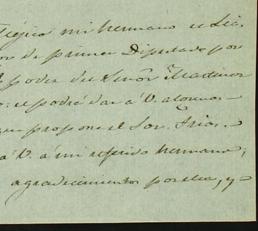 mi hermano el Lic.
de primer Diputado por
poder del Señor Martinez
: el podrá dar á V. algunos
que propone el Sor. Frias.
á V. á mi referido hermano,
agradecimiento por ella, y